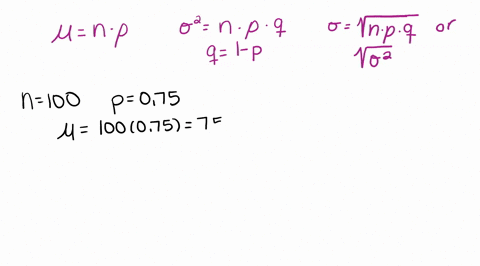 μ = n·p   σ² = n·p·q   σ = √n·p·q or
q = 1-p   √σ²
n=100   p=0.75
μ = 100(0.75) = 7